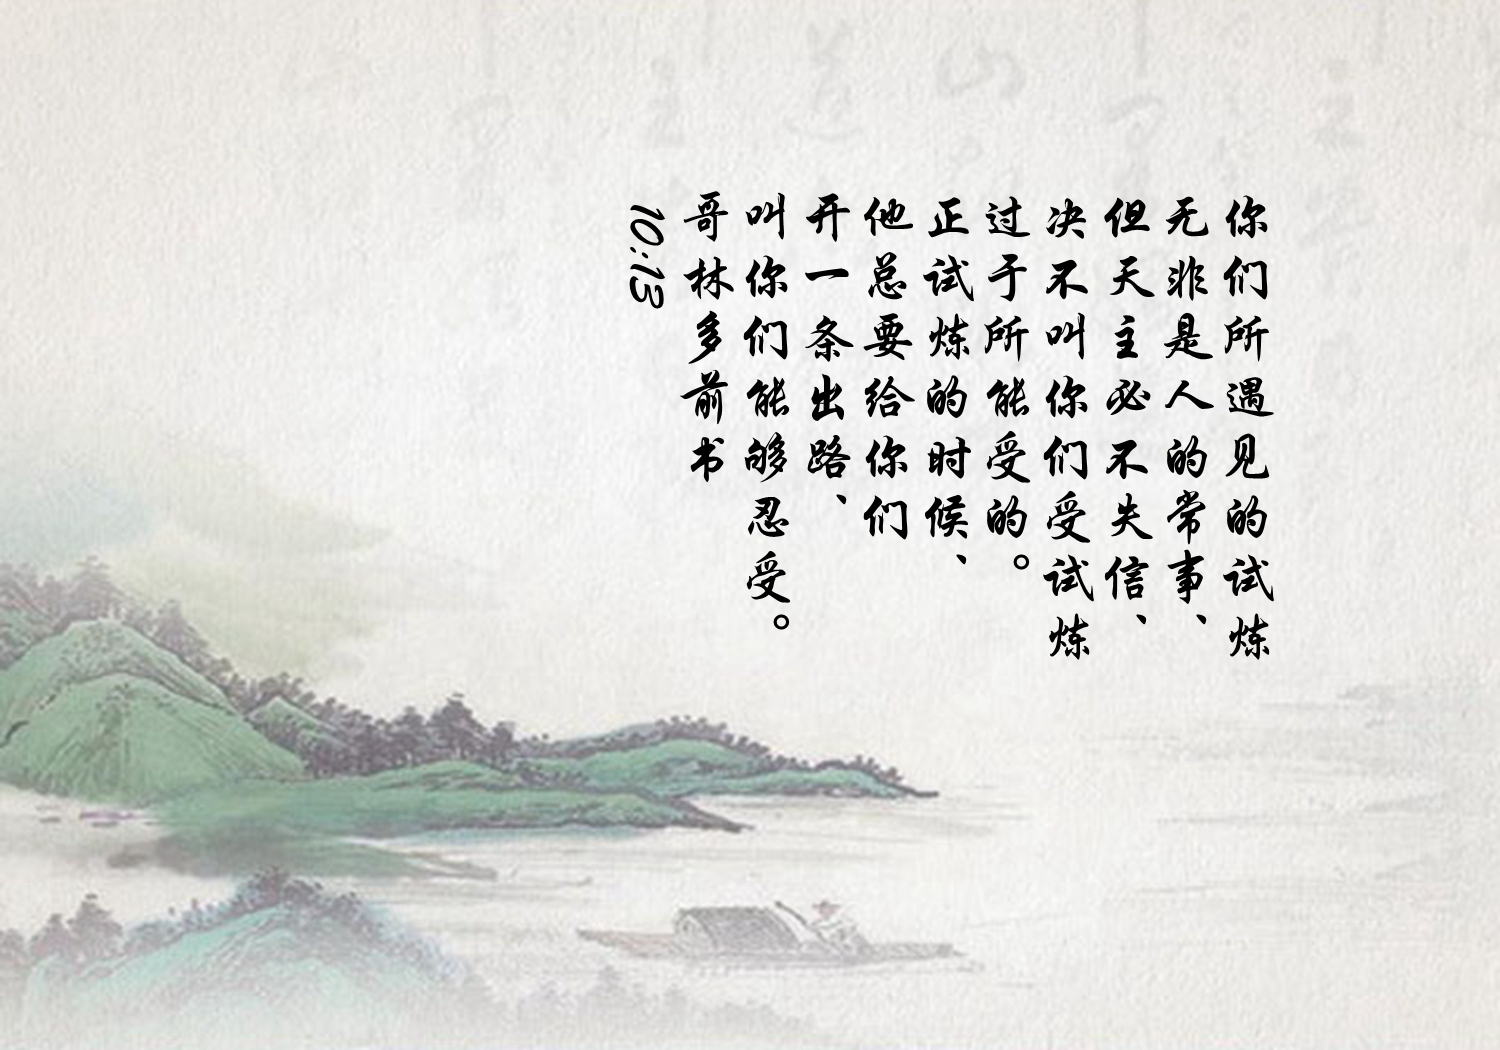 你们所遇见的试炼
无非是人的常事、
但天主必不失信、
决不叫你们受试炼
过于所能受的。
正试炼的时候、
他总要给你们
开一条出路、
叫你们能够忍受。
哥林多前书
10:13